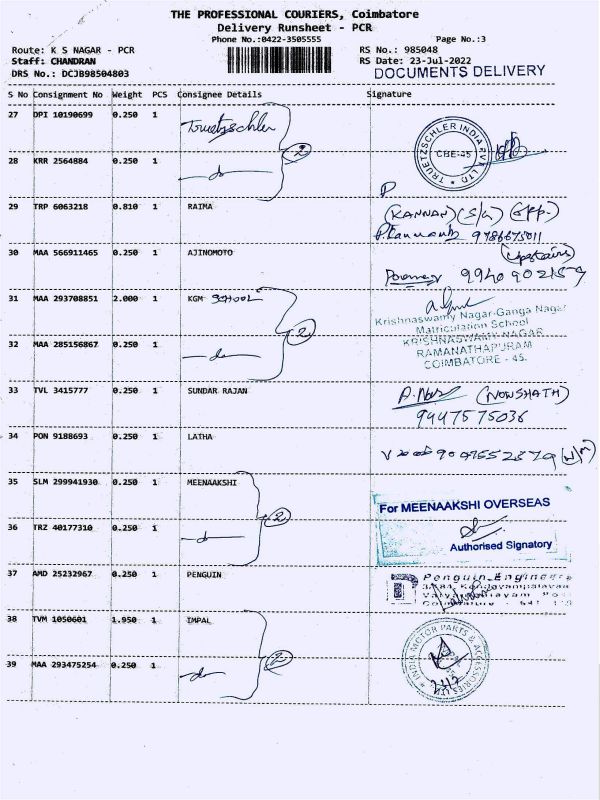 THE PROFESSIONAL COURIERS, Coimbatore
Delivery Runsheet - PCR
Phone No.:0422-3505555 Page No.:3
Route: K S NAGAR - PCR RS No.: 985048
Staff: CHANDRAN RS Date: 23-Jul-2022
DRS No.: DCJB98504803 DOCUMENTS DELIVERY
S No Consignment No Weight PCS Consignee Details Signature
27 DPI 10190699 0.250 1 Truetzschler
TRUETZSCHLER INDIA PVT LTD
CBE-45
28 KRR 2564884 0.250 1 -do- 2
29 TRP 6063218 0.810 1 RAIMA (KANNAN) (S/G)
P. Kannan 9786675011
30 MAA 566911465 0.250 1 AJINOMOTO (Upstairs)
31 MAA 293708851 2.000 1 KGM SCHOOL
Krishnaswamy Nagar-Ganga Nagar
Matriculation School
32 MAA 285156867 0.250 1 -do- 2
KRISHNASWAMY NAGAR
RAMANATHAPURAM
COIMBATORE - 45.
33 TVL 3415777 0.250 1 SUNDAR RAJAN (NOWSHATH)
9447575036
34 PON 9188693 0.250 1 LATHA
35 SLM 299941930 0.250 1 MEENAAKSHI
For MEENAAKSHI OVERSEAS
36 TRZ 40177310 0.250 1 -do- 2
Authorised Signatory
37 AMD 25232967 0.250 1 PENGUIN
Penguin Engineers
38 TVM 1050601 1.950 1 IMPAL
INDIA MOTOR PARTS & ACCESSORIES LTD
39 MAA 293475254 0.250 1 -do- 2